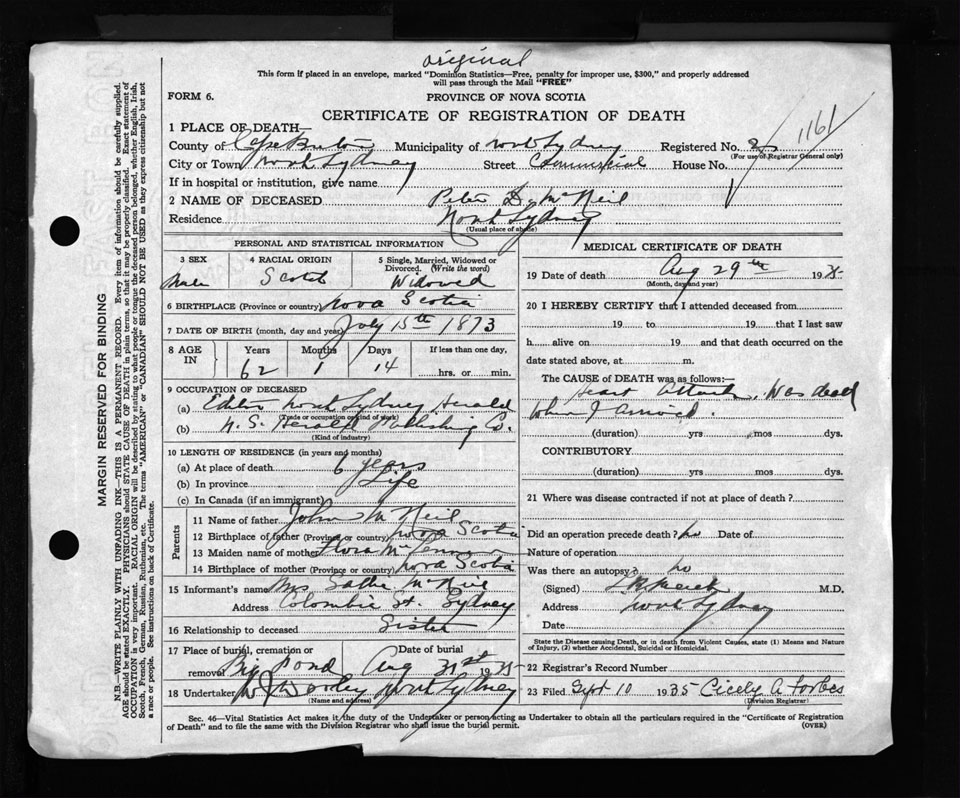 original
This form if placed in an envelope, marked "Dominion Statistics—Free, penalty for improper use, $300," and properly addressed
will pass through the Mail "FREE"
FORM 6.
PROVINCE OF NOVA SCOTIA
CERTIFICATE OF REGISTRATION OF DEATH
1161
1 PLACE OF DEATH—
County of Cape Breton Municipality of North Sydney Registered No.
(For use of Registrar General only)
City or Town North Sydney Street Commercial House No.
If in hospital or institution, give name
2 NAME OF DECEASED Peter D. McNeil
Residence North Sydney
(Usual place of abode)
PERSONAL AND STATISTICAL INFORMATION
3 SEX Male
4 RACIAL ORIGIN Scotch
5 Single, Married, Widowed or Divorced. (Write the word) Widowed
6 BIRTHPLACE (Province or country) Nova Scotia
7 DATE OF BIRTH (month, day and year) July 15th 1873
8 AGE IN Years 62 Months 1 Days 14 If less than one day, hrs. or min.
9 OCCUPATION OF DECEASED
(a) Editor North Sydney Herald
(Trade or occupation or kind of work)
(b) N. S. Herald Publishing Co.
(Kind of industry)
10 LENGTH OF RESIDENCE (in years and months)
(a) At place of death 6 years
(b) In province Life
(c) In Canada (if an immigrant)
Parents
11 Name of father John McNeil
12 Birthplace of father (Province or country) Nova Scotia
13 Maiden name of mother Flora
14 Birthplace of mother (Province or country) Nova Scotia
15 Informant's name Mrs Sadie McNeil
Address Colombia St. Sydney
16 Relationship to deceased Sister
17 Place of burial, cremation or removal Big Pond Date of burial Aug 31st 1935
18 Undertaker Dooley North Sydney
(Name and address)
MEDICAL CERTIFICATE OF DEATH
19 Date of death Aug 29th 193
(Month, day and year)
20 I HEREBY CERTIFY that I attended deceased from
19 to 19 that I last saw
h alive on 19 and that death occurred on the
date stated above, at m.
The CAUSE of DEATH was as follows:—
Heart attack. Was dead
when I arrived.
(duration) yrs mos dys.
CONTRIBUTORY
(duration) yrs mos dys.
21 Where was disease contracted if not at place of death?
Did an operation precede death? No Date of
Nature of operation
Was there an autopsy? No
(Signed) M.D.
Address North Sydney
Date
State the Disease causing Death, or in death from Violent Causes, state (1) Means and Nature
of Injury, (2) whether Accidental, Suicidal or Homicidal.
22 Registrar's Record Number
23 Filed Sept 10 1935 Cicely A Forbes
(Division Registrar)
Sec. 46—Vital Statistics Act makes it the duty of the Undertaker or person acting as Undertaker to obtain all the particulars required in the "Certificate of Registration
of Death" and to file the same with the Division Registrar who shall issue the burial permit.
(OVER)
MARGIN RESERVED FOR BINDING
N.B.—WRITE PLAINLY WITH UNFADING INK—THIS IS A PERMANENT RECORD. Every item of information should be carefully supplied.
AGE should be stated EXACTLY. PHYSICIANS should STATE CAUSE OF DEATH in plain terms, so that it may be properly classified. Exact statement of
OCCUPATION is very important. RACIAL ORIGIN will be described by stating to what people or tongue the deceased person belonged, whether English, Irish,
Scotch, French, German, Russian, Ruthenian, etc. The terms "AMERICAN" or "CANADIAN" SHOULD NOT BE USED as they express citizenship but not
a race or people. See instructions on back of Certificate.